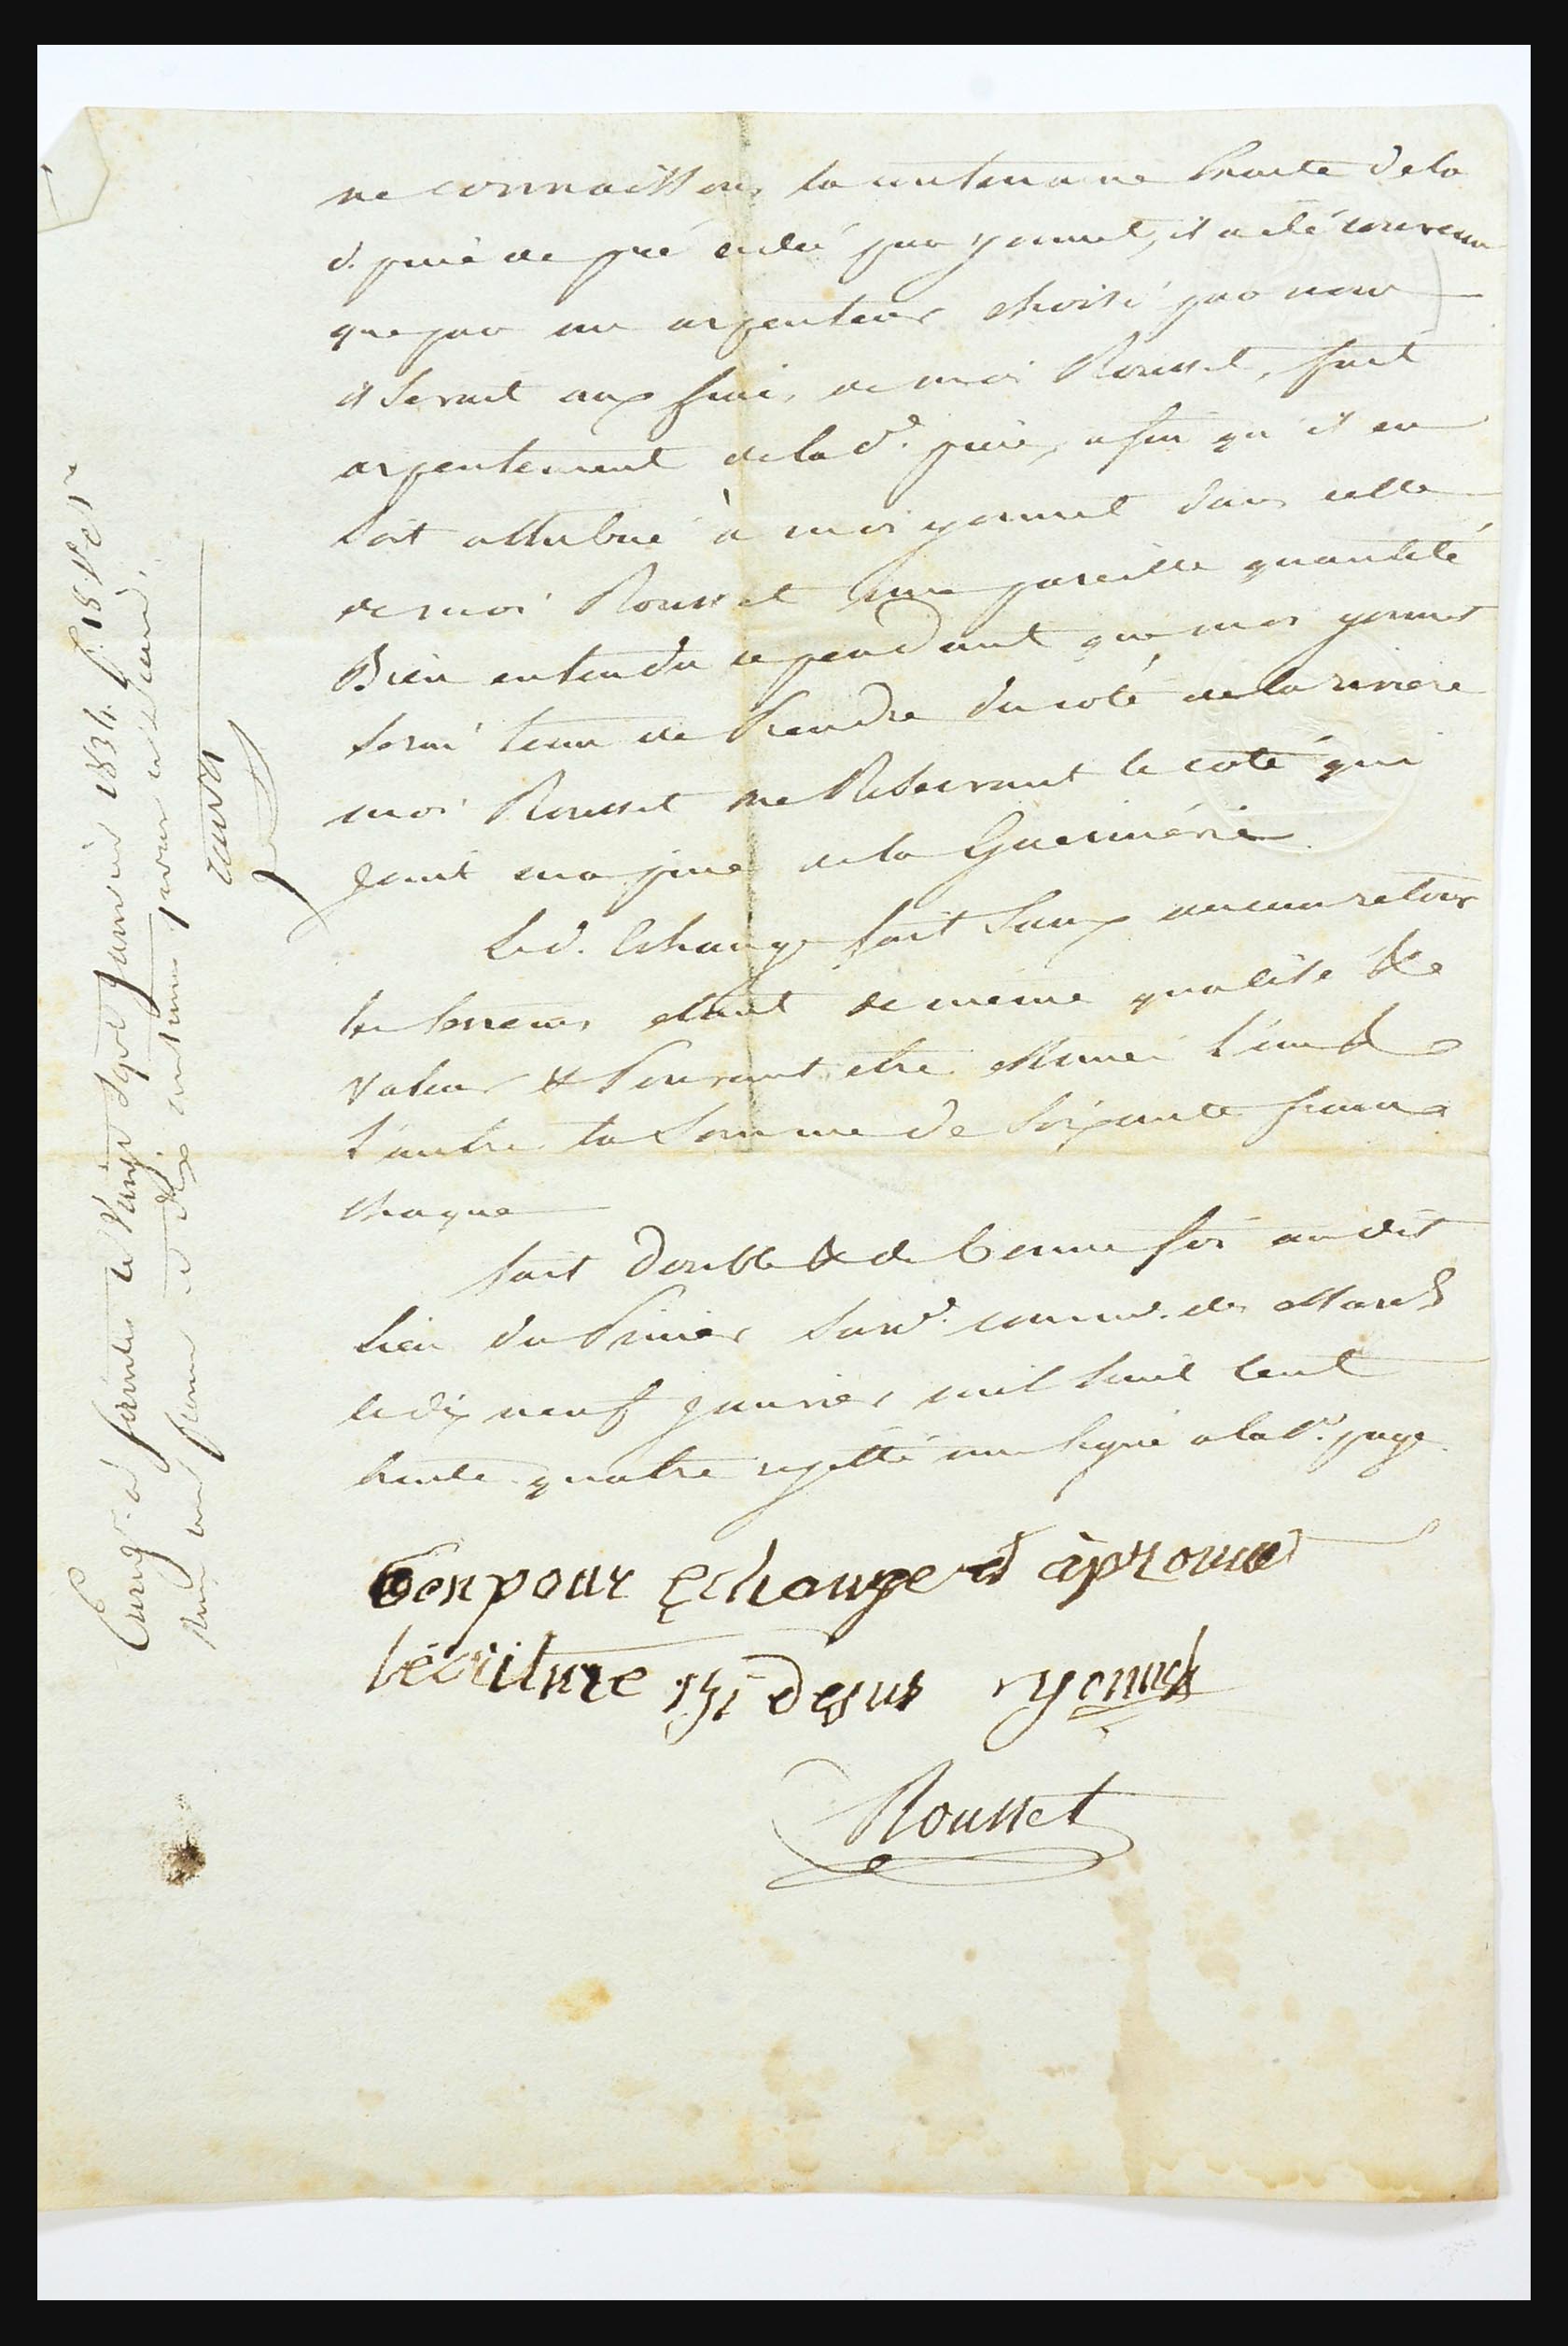 ne connaissons la contenance Exacte de la
d. pièce de pré cédée par yonnet, il a été convenu
que par un arpenteur choisi par nous
il Serait aux frais de moi Rousset, fait
arpentement de la d.e pièce, afin qu'il en
soit attribué à moi yonnet dans celle
de moi Rousset une pareille quantité
Bien entendu cependant que moi yonnet
serai tenu de Prendre du coté de la riviere
moi Rousset me Reservant le coté qui
joint ma pièce de la
Led. Echange fait Sans aucun retour
les terrains etant de même qualité &
valeur & Pouvant etre estimés l'un &
l'autre la Somme de Soixante francs
chaque
fait Double & de bonne foi au dit
lieu du Pinier susd. commune des
le dix neuf janvier mil huit cent
trente quatre rejetté une ligne a la p.re page
bon pour Echange et àprouve
lécriture si desus yonnet
Rousset
Enreg.é à Saintes le Vingt Sept janvier 1834. f.o 18 V.o c. 1
Reçu un franc et dix centimes pour